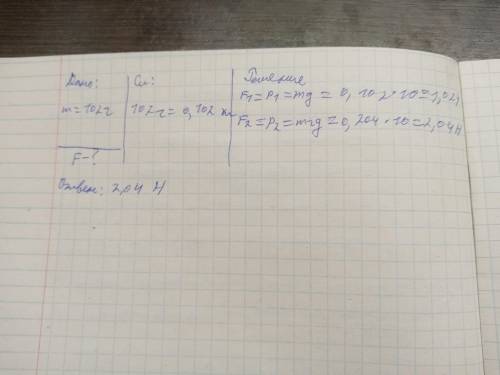 Дано:
m=102г
F-?
Си:
102г=0,102 кг
Решение
F1=P1=mg=0,102·10=1,02H
F2=P2=m2g=0,204·10=2,04H
Ответ: 2,04 H